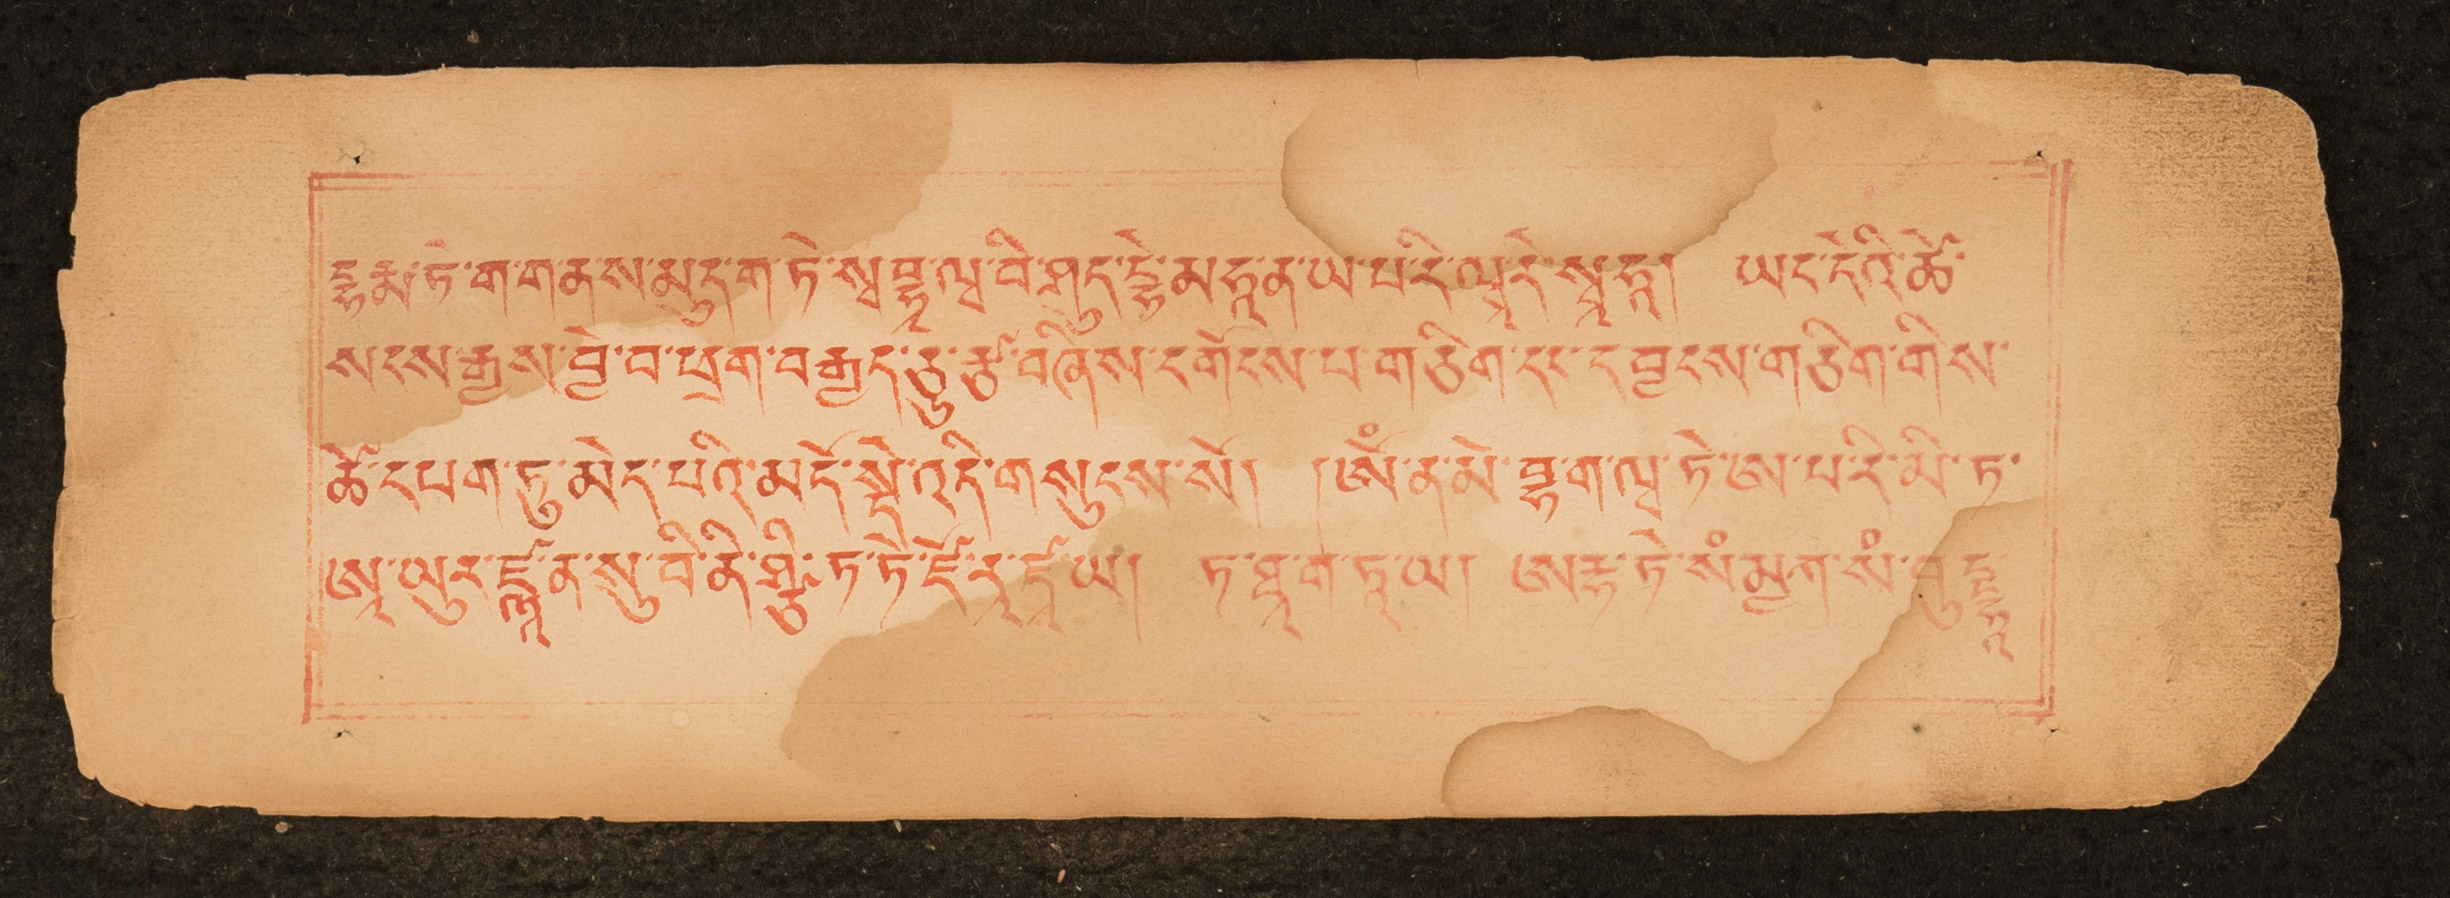 དྷརྨ་ཏེ་ག་ག་ན་ས་མུདྒ་ཏེ་སྭ་བྷཱ་ཝ་བི་ཤུདྡྷེ་མ་ཧཱ་ན་ཡ་པ་རི་ཝཱ་རེ་སྭཱ་ཧཱ། ཡང་དེའི་ཚེ་
སངས་རྒྱས་བྱེ་བ་ཕྲག་བརྒྱད་ཅུ་རྩ་བཞིས་དགོངས་པ་གཅིག་དང་དབྱངས་གཅིག་གིས་
ཚེ་དཔག་ཏུ་མེད་པའི་མདོ་སྡེ་འདི་གསུངས་སོ། །ཨོཾ་ན་མོ་བྷ་ག་ཝ་ཏེ་ཨ་པ་རི་མི་ཏ་
ཨཱ་ཡུར་ཛྙཱ་ན་སུ་བི་ནི་ཤྩི་ཏ་ཏེ་ཛོ་རཱ་ཛཱ་ཡ། ཏ་ཐཱ་ག་ཏཱ་ཡ། ཨརྷ་ཏེ་སཾ་མྱཀ་སཾ་བུདྡྷཱ་